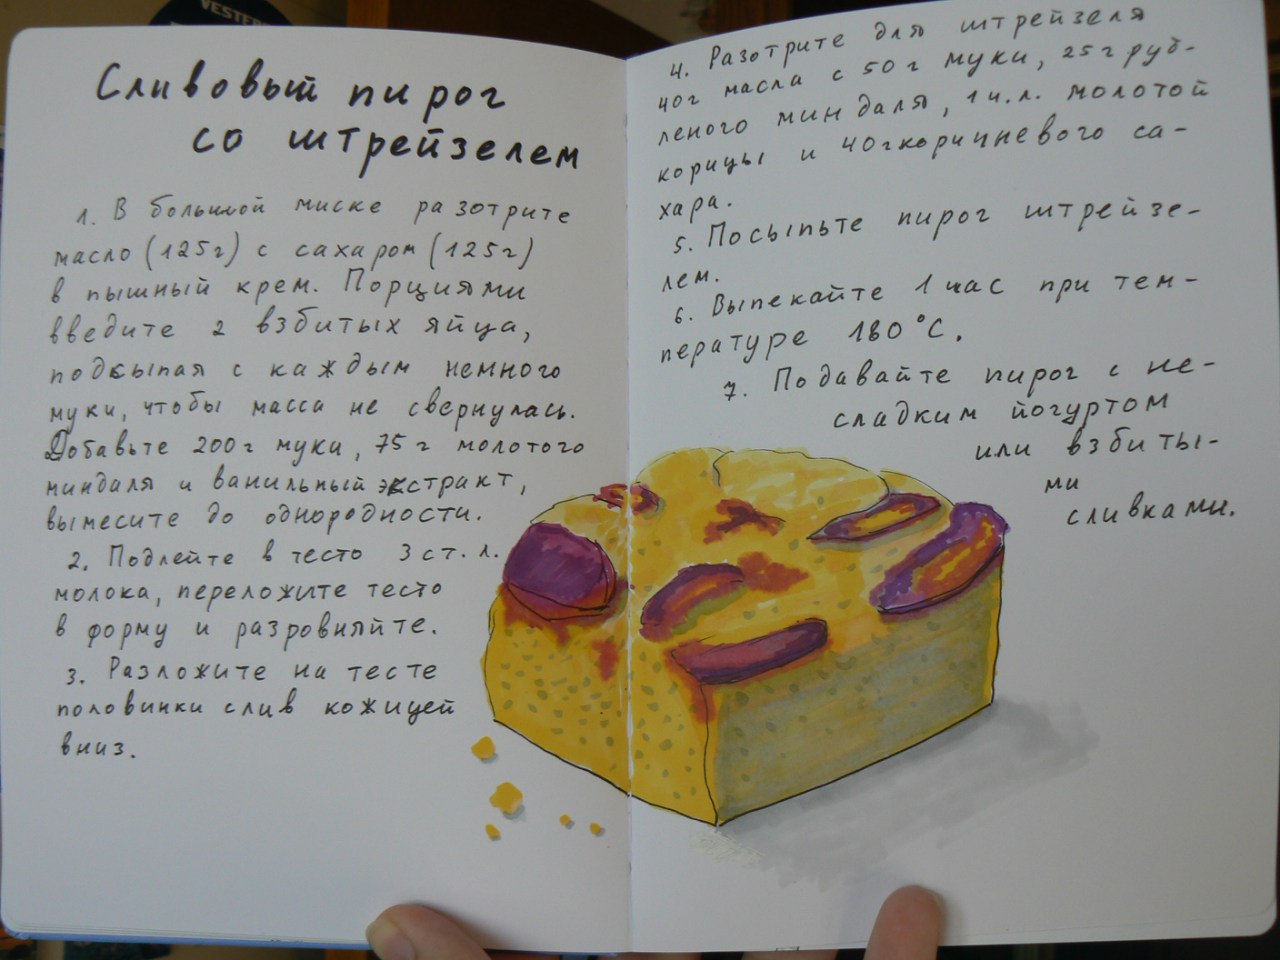 VESTER
Сливовый пирог
со штрейзелем
1. В большой миске разотрите
масло (125г) с сахаром (125г)
в пышный крем. Порциями
введите 2 взбитых яйца,
подсыпая с каждым немного
муки, чтобы масса не свернулась.
Добавьте 200г муки, 75г молотого
миндаля и ванильный экстракт,
вымесите до однородности.
2. Подлейте в тесто 3 ст. л.
молока, переложите тесто
в форму и разровняйте.
3. Разложите на тесте
половинки слив кожицей
вниз.
4. Разотрите для штрейзеля
40г масла с 50г муки, 25г руб-
леного миндаля, 1 ч.л. молотой
корицы и 40г коричневого са-
хара.
5. Посыпьте пирог штрейзе-
лем.
6. Выпекайте 1 час при тем-
пературе 180°С.
7. Подавайте пирог с не-
сладким йогуртом
или взбиты-
ми
сливками.